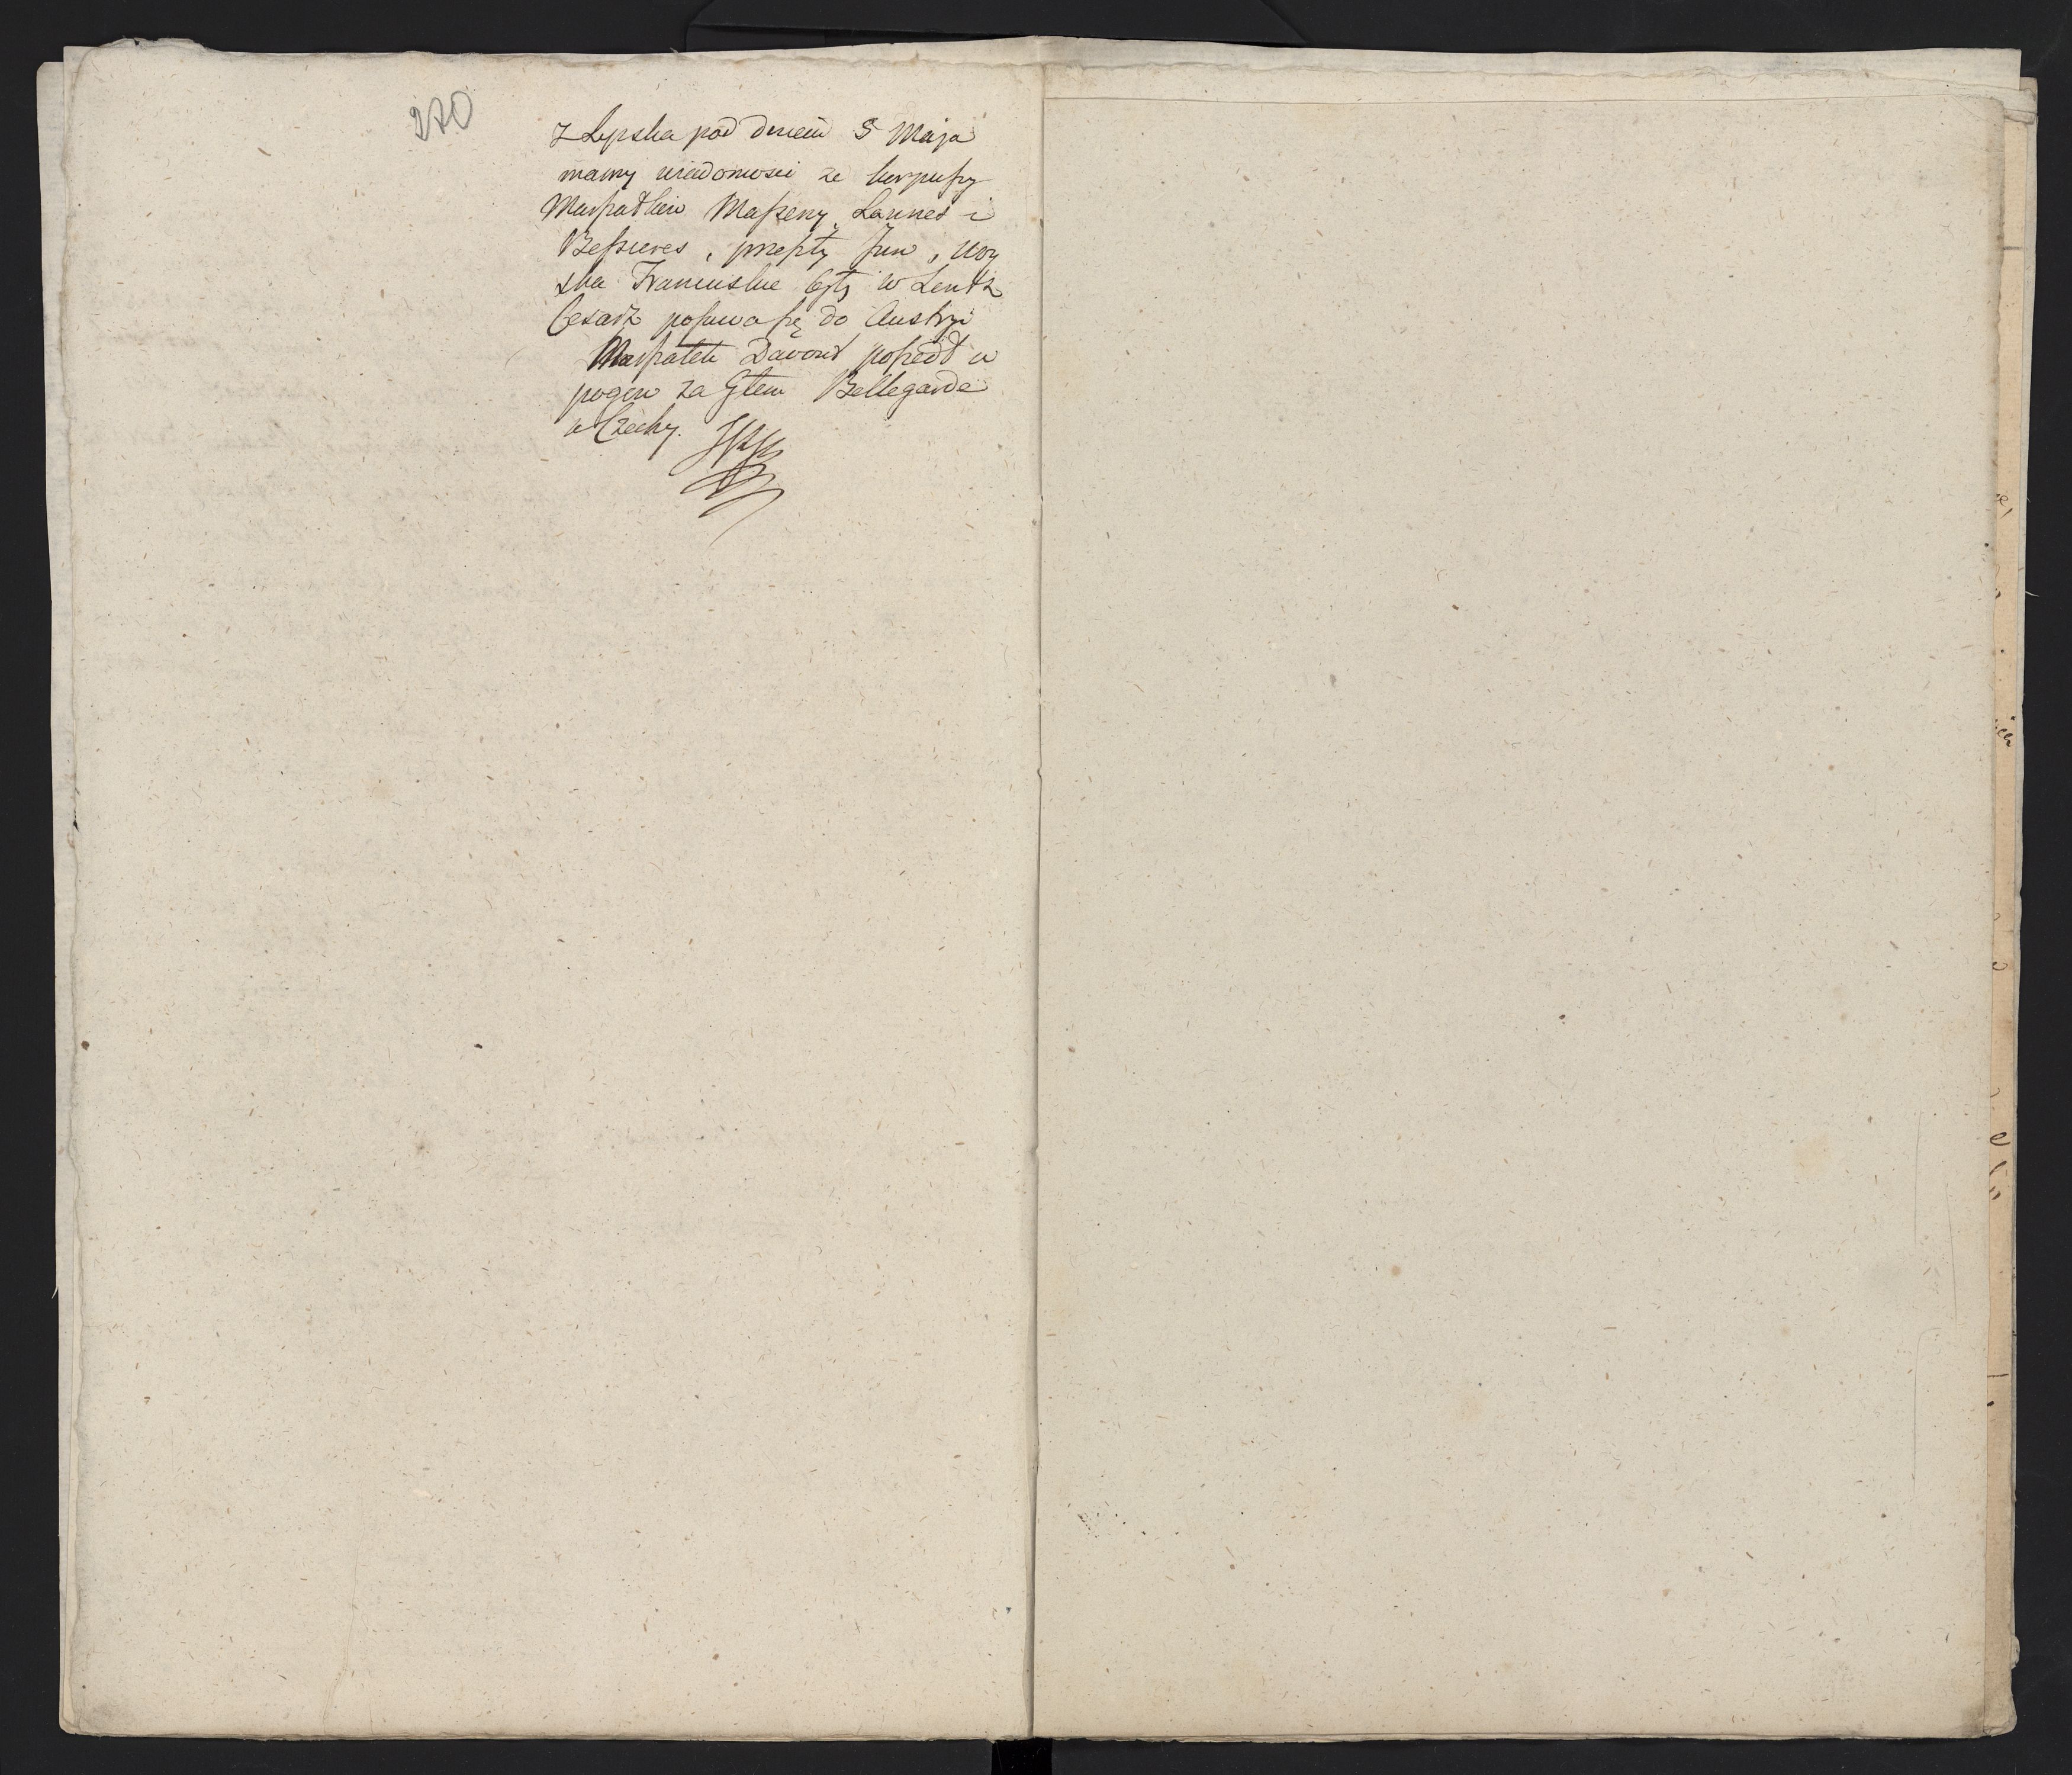 270
z Lipska pod dniem 5 Maja
mamy wiadomosci ze korpusy
Marszałków Masseny, Lannes i
Bessieres, przeszły Jnn, woy
ska Francuskie były w Lentz
Cesarz posuwa się do Austryi
Marszałek Davout poszedł w
pogon za Głem Bellegarde
w Czechy.